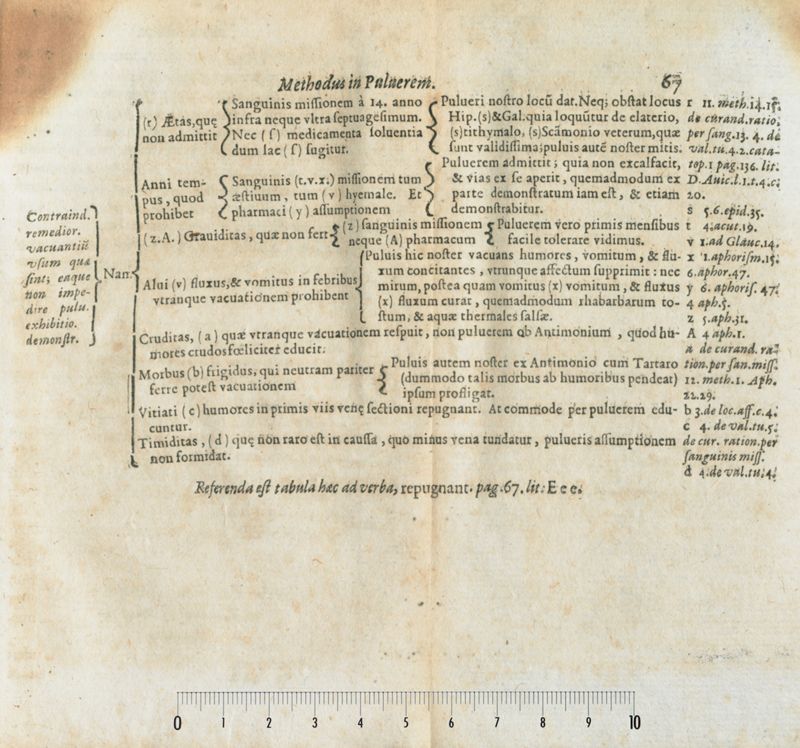 Methodus in Puluerem. 67
(r) Ætas, quę non admittit
Sanguinis missionem à 14. anno
infra neque vltra septuagesimum.
Nec (ſ) medicamenta soluentia
dum lac (ſ) sugitur.
Pulueri nostro locū dat. Neq; obstat locus
Hip. (s) & Gal. quia loquūtur de elaterio,
(s) tithymalo, (s) Scāmonio veterum, quæ
sunt validissima; puluis autē noster mitis.
Anni tem-
pus, quod
prohibet
Sanguinis (t.v.x.) missionem tum
æstiuum, tum (v) hyemale. Et
pharmaci (y) assumptionem
Puluerem admittit; quia non excalfacit,
& vias ex se aperit, quemadmodum ex
parte demonstratum iam est, & etiam
demonstrabitur.
(z. A.) Grauiditas, quæ non fert
(z) sanguinis missionem
neque (A) pharmacum
Puluerem vero primis mensibus
facile tolerare vidimus.
Alui (v) fluxus, & vomitus in febribus
vtranque vacuationem prohibent
Puluis hic noster vacuans humores, vomitum, & flu-
xum concitantes, vtrunque affectum supprimit: nec
mirum, postea quam vomitus (x) vomitum, & fluxus
(x) fluxum curat, quemadmodum rhabarbarum to-
stum, & aquæ thermales salsæ.
Cruditas, (a) quæ vtranque vacuationem respuit, non puluerem ob Antimonium, quod hu-
mores crudos fœliciter educit.
Morbus (b) frigidus, qui neutram pariter
ferre potest vacuationem
Puluis autem noster ex Antimonio cum Tartaro
(dummodo talis morbus ab humoribus pendeat)
ipsum profligat.
Vitiati (c) humores in primis viis venę sectioni repugnant. At commode per puluerem edu-
cuntur.
Timiditas, (d) quę non raro est in caussa, quo minus vena tundatur, pulueris assumptionem
non formidat.
Contraind.
remedior.
vacuantiū
vsum quæ
sint; eaque
non impe-
dire pulu.
exhibitio.
demonstr.
Nam
r 11. meth. 14. 15.
de curand. ratio.
per sang. 13. 4. de
val. tu. 4. 2. cata-
top. 1 pag. 136. lit.
D. Auic. l. 1. t. 4. c.
20.
s 5. 6. epid. 35.
t 4. acut. 19.
v 1. ad Glauc. 14.
x 1. aphorism. 15.
6. aphor. 47.
y 6. aphoris. 47.
4 aph. 5.
z 5. aph. 31.
A 4 aph. 1.
a de curand. ra-
tion. per san. miss.
12. meth. 1. Aph.
22. 29.
b 3. de loc. aff. c. 4.
c 4. de val. tu. 5.
de cur. ration. per
sanguinis miss.
d 4. de val. tu. 4.
Referenda est tabula hæc ad verba, repugnant. pag. 67. lit. E e e.
0 1 2 3 4 5 6 7 8 9 10